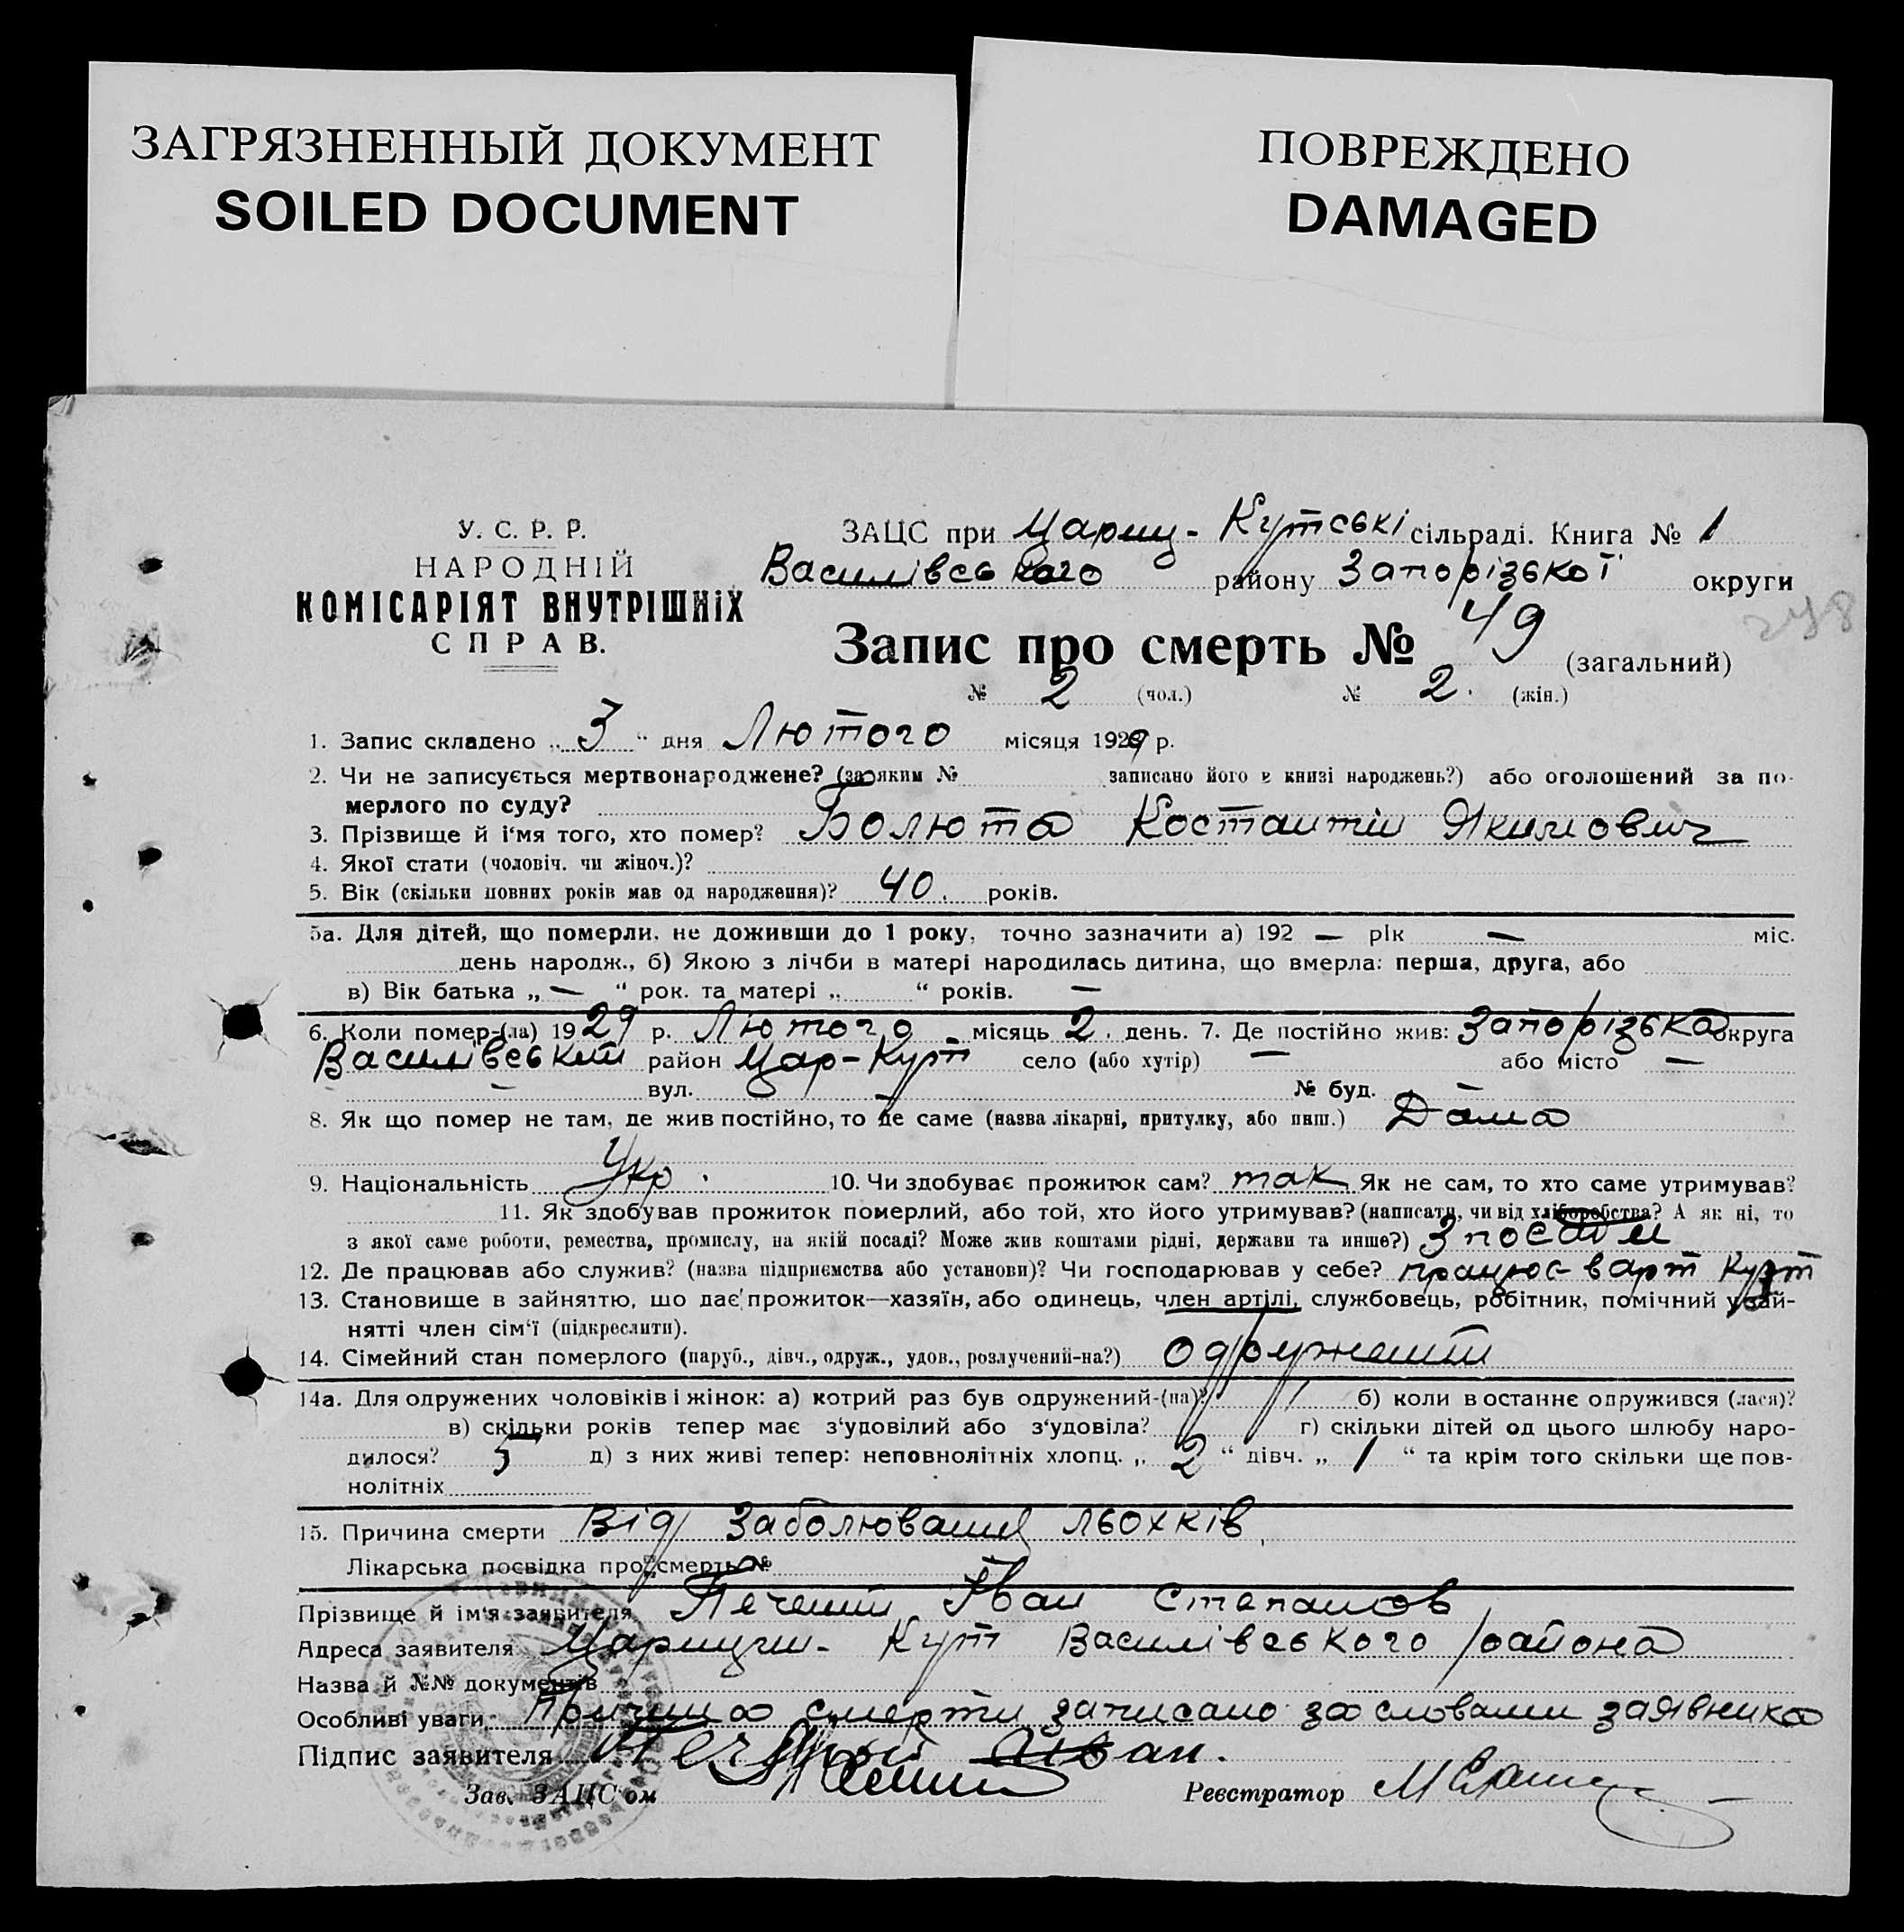 ЗАГРЯЗНЕННЫЙ ДОКУМЕНТ
SOILED DOCUMENT
ПОВРЕЖДЕНО
DAMAGED
У. С. Р. Р.
НАРОДНІЙ
КОМІСАРІЯТ ВНУТРІШНІХ
СПРАВ.
ЗАЦС при Цариц-Кутські сільраді. Книга № 1
Василівського району Запорізької округи
248
Запис про смерть № 49 (загальний)
№ 2 (чол.) № 2. (жін.)
1. Запис складено „ 3 “ дня Лютого місяця 1929 р.
2. Чи не записується мертвонароджене? (за яким № записано його в книзі народжень?) або оголошений за по-
мерлого по суду?
3. Прізвище й і'мя того, хто помер? Болюта Костантин Якимович
4. Якої стати (чоловіч. чи жіноч.)?
5. Вік (скільки повних років мав од народження)? 40. років.
5а. Для дітей, що померли, не доживши до 1 року, точно зазначити а) 192 — рік — міс.
день народж., б) Якою з лічби в матері народилась дитина, що вмерла: перша, друга, або
в) Вік батька „ — “ рок. та матері „ “ років. —
6. Коли помер-(ла) 1929 р. Лютого місяць 2. день. 7. Де постійно жив: Запорізька округа
Василівський район Цар-Кут село (або хутір) — або місто —
— вул. — № буд. —
8. Як що помер не там, де жив постійно, то де саме (назва лікарні, притулку, або инш.) Дома
9. Національність Укр. 10. Чи здобуває прожиток сам? так Як не сам, то хто саме утримував?
11. Як здобував прожиток померлий, або той, хто його утримував? (написати, чи від хліборобства? А як ні, то
з якої саме роботи, ремества, промислу, на якій посаді? Може жив коштами рідні, держави та инше?) З посади
12. Де працював або служив? (назва підприємства або установи)? Чи господарював у себе? Кут
13. Становище в зайняттю, що дає прожиток—хазяїн, або одинець, член артілі, службовець, робітник, помічний у зай-
нятті член сім'ї (підкреслити).
14. Сімейний стан померлого (паруб., дівч., одруж., удов., розлучений-на?) одружений
14а. Для одружених чоловіків і жінок: а) котрий раз був одружений-(на)? 1 б) коли в останнє одружився (лася)?
в) скільки років тепер має з'удовілий або з'удовіла? г) скільки дітей од цього шлюбу наро-
дилося? 5 д) з них живі тепер: неповнолітніх хлопц. „ 2 “ дівч. „ 1 “ та крім того скільки ще пов-
нолітніх
15. Причина смерти Від Заболювання льохків
Лікарська посвідка про смерть №
Прізвище й ім'я заявителя Печений Іван Степанов
Адреса заявителя Царицин-Кут Василівського района
Назва й №№ документів
Особливі уваги Причина смерти записано за словами заявника
Підпис заявителя Печений Іван.
Зав. ЗАЦС'ом
Реєстратор